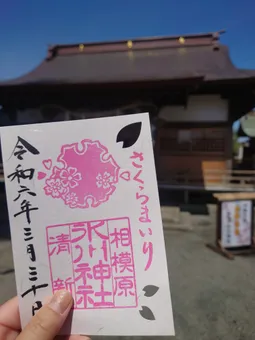 さくらまいり
相模原
氷川神社
清新
令和六年三月三十日